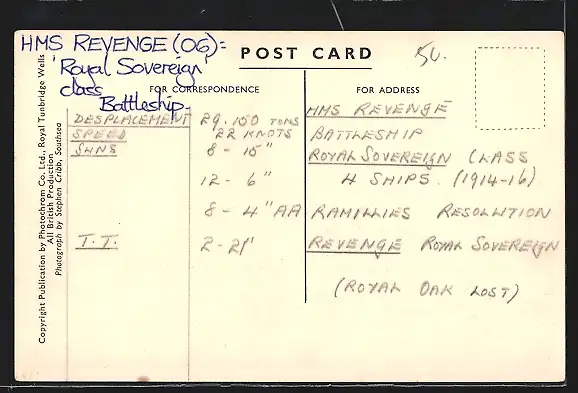 HMS REVENGE (06):
'Royal Sovereign'
class
Battleship.
POST CARD
50.
FOR CORRESPONDENCE
FOR ADDRESS
DESPLACEMENT 29.150 TONS
SPEED 22 KNOTS
GUNS 8 - 15"
12 - 6"
8 - 4" AA
T.T. 2 - 21"
HMS REVENGE
BATTLESHIP
ROYAL SOVEREIGN CLASS
4 SHIPS. (1914-16)
RAMILLIES RESOLUTION
REVENGE ROYAL SOVEREIGN
(ROYAL OAK LOST)
Copyright Publication by Photochrom Co. Ltd., Royal Tunbridge Wells
All British Production
Photograph by Stephen Cribb, Southsea